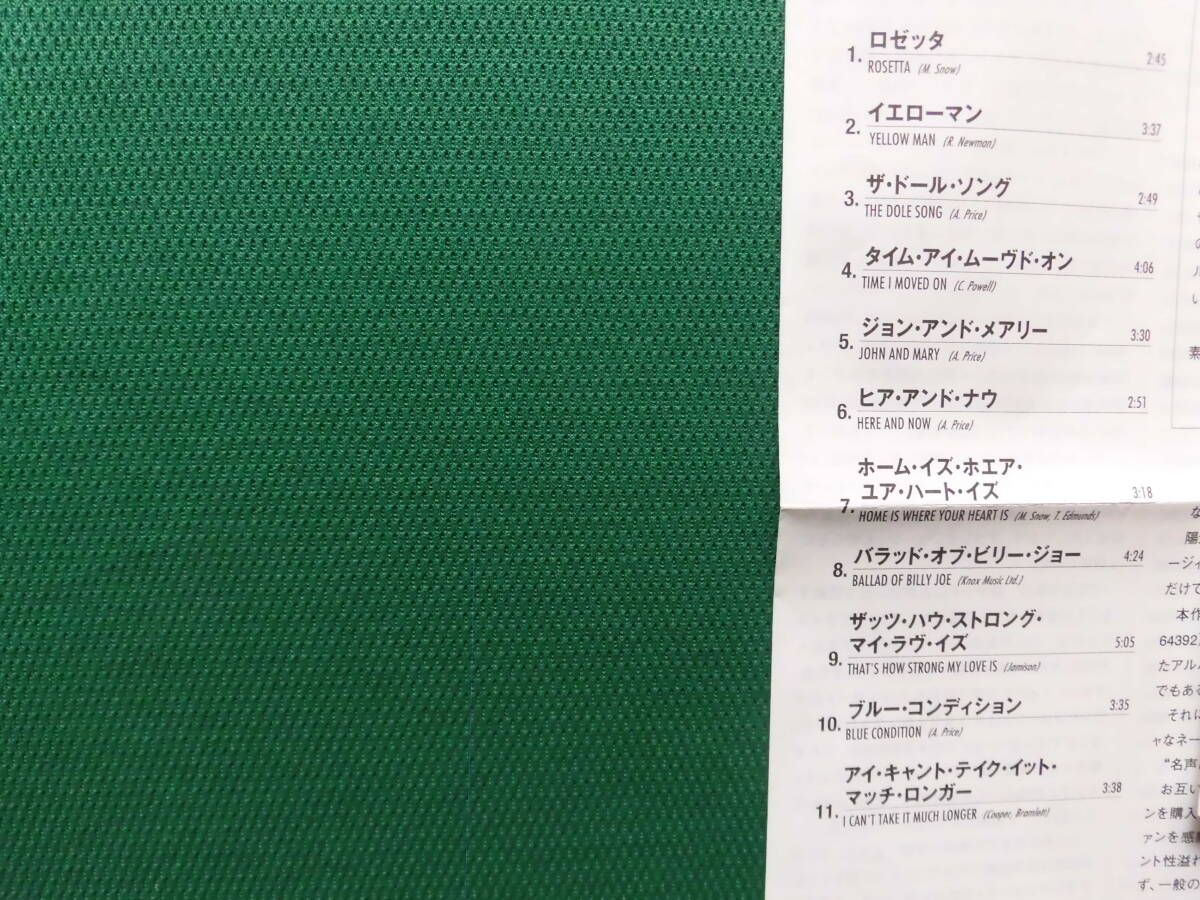 1. ロゼッタ 2:45
ROSETTA (M. Snow)
2. イエローマン 3:37
YELLOW MAN (R. Newman)
3. ザ・ドール・ソング 2:49
THE DOLE SONG (A. Price)
4. タイム・アイ・ムーヴド・オン 4:06
TIME I MOVED ON (C. Powell)
5. ジョン・アンド・メアリー 3:30
JOHN AND MARY (A. Price)
6. ヒア・アンド・ナウ 2:51
HERE AND NOW (A. Price)
ホーム・イズ・ホエア・
7. ユア・ハート・イズ 3:18
HOME IS WHERE YOUR HEART IS (M. Snow, T. Edmunds)
8. バラッド・オブ・ビリー・ジョー 4:24
BALLAD OF BILLY JOE (Knox Music Ltd.)
ザッツ・ハウ・ストロング・
9. マイ・ラヴ・イズ 5:05
THAT'S HOW STRONG MY LOVE IS (Jamison)
10. ブルー・コンディション 3:35
BLUE CONDITION (A. Price)
アイ・キャント・テイク・イット・
11. マッチ・ロンガー 3:38
I CAN'T TAKE IT MUCH LONGER (Cooper, Bramlett)
の
ル
い
素
な
陽
ージ
だけで
本作
64392
たアル
でもある
それに
ャなネー
“名声
お互い
ンを購入
ァンを感
ント性溢れ
ず、一般の